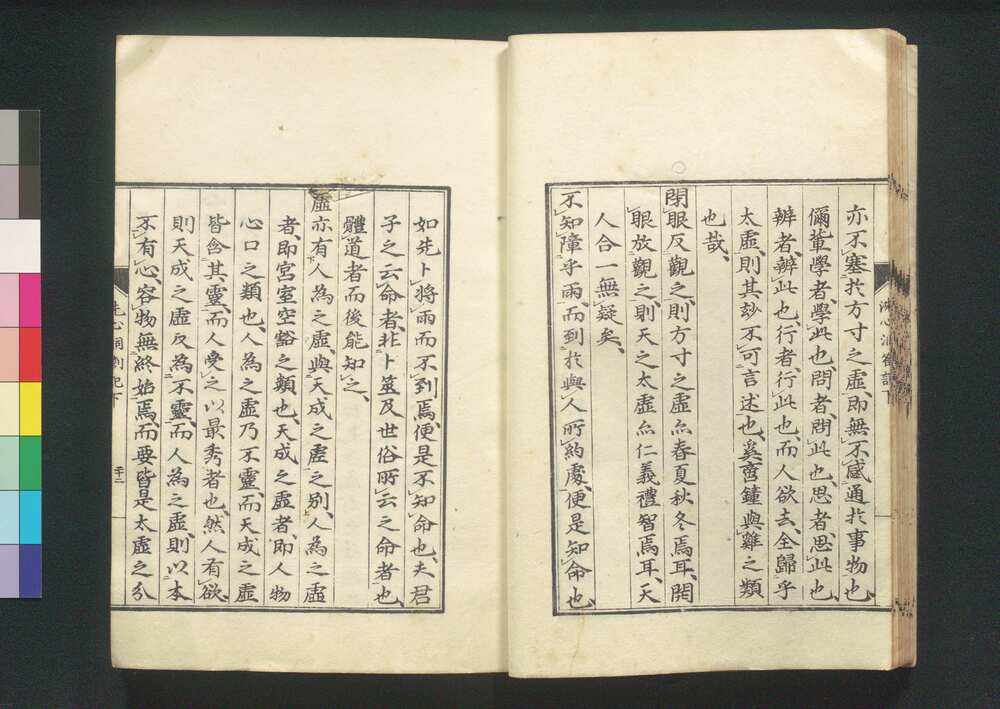 亦不塞於方寸之虛、即無不感通於事物也、
儞輩學者、學此也、問者、問此也、思者、思此也、
辨者、辨此也、行者、行此也、而人欲去、全歸乎
太虛、則其妙不可言述也、奚啻鐘與雞之類
也哉、
閉眼反觀之、則方寸之虛亦春夏秋冬焉耳、開
眼放觀之、則天之太虛亦仁義禮智焉耳、天
人合一無疑矣、
不知障乎雨、而到於與人所約處、便是知命也、
如先卜將雨而不到焉、便是不知命也、夫君
子之云命者、非卜筮及世俗所云之命者也、
體道者而後能知之、
虛亦有人為之虛、與天成之虛之別、人為之虛
者、即宮室空豁之類也、天成之虛者、即人物
心口之類也、人為之虛乃不靈、而天成之虛
皆含其靈、而人受之以最秀者也、然人有欲、
則天成之虛反為不靈、而人為之虛、則以本
不有心、容物無終始焉、而要皆是太虛之分
洗心洞劄記下